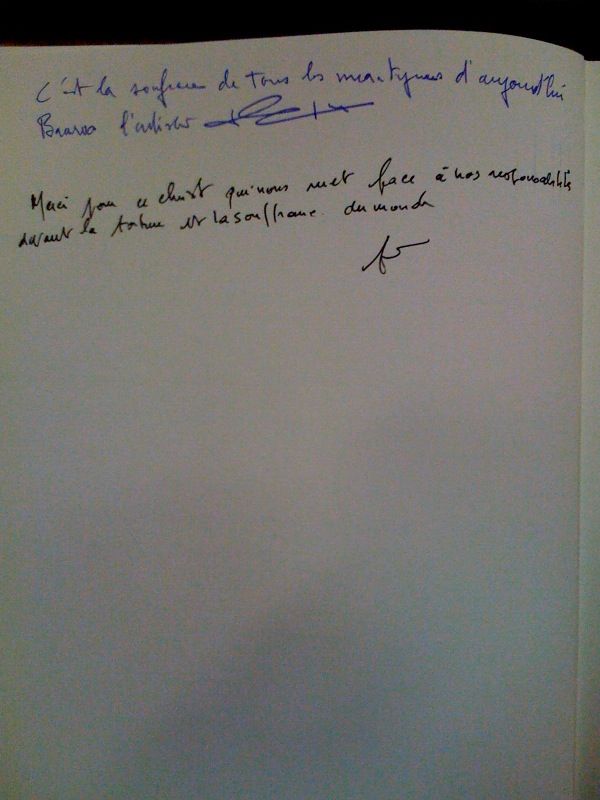 C'est la souffrance de tous les martyrs d'aujourd'hui
Bravo l'artiste
Merci pour ce christ qui nous met face à nos responsabilités
devant la torture et la souffrance du monde